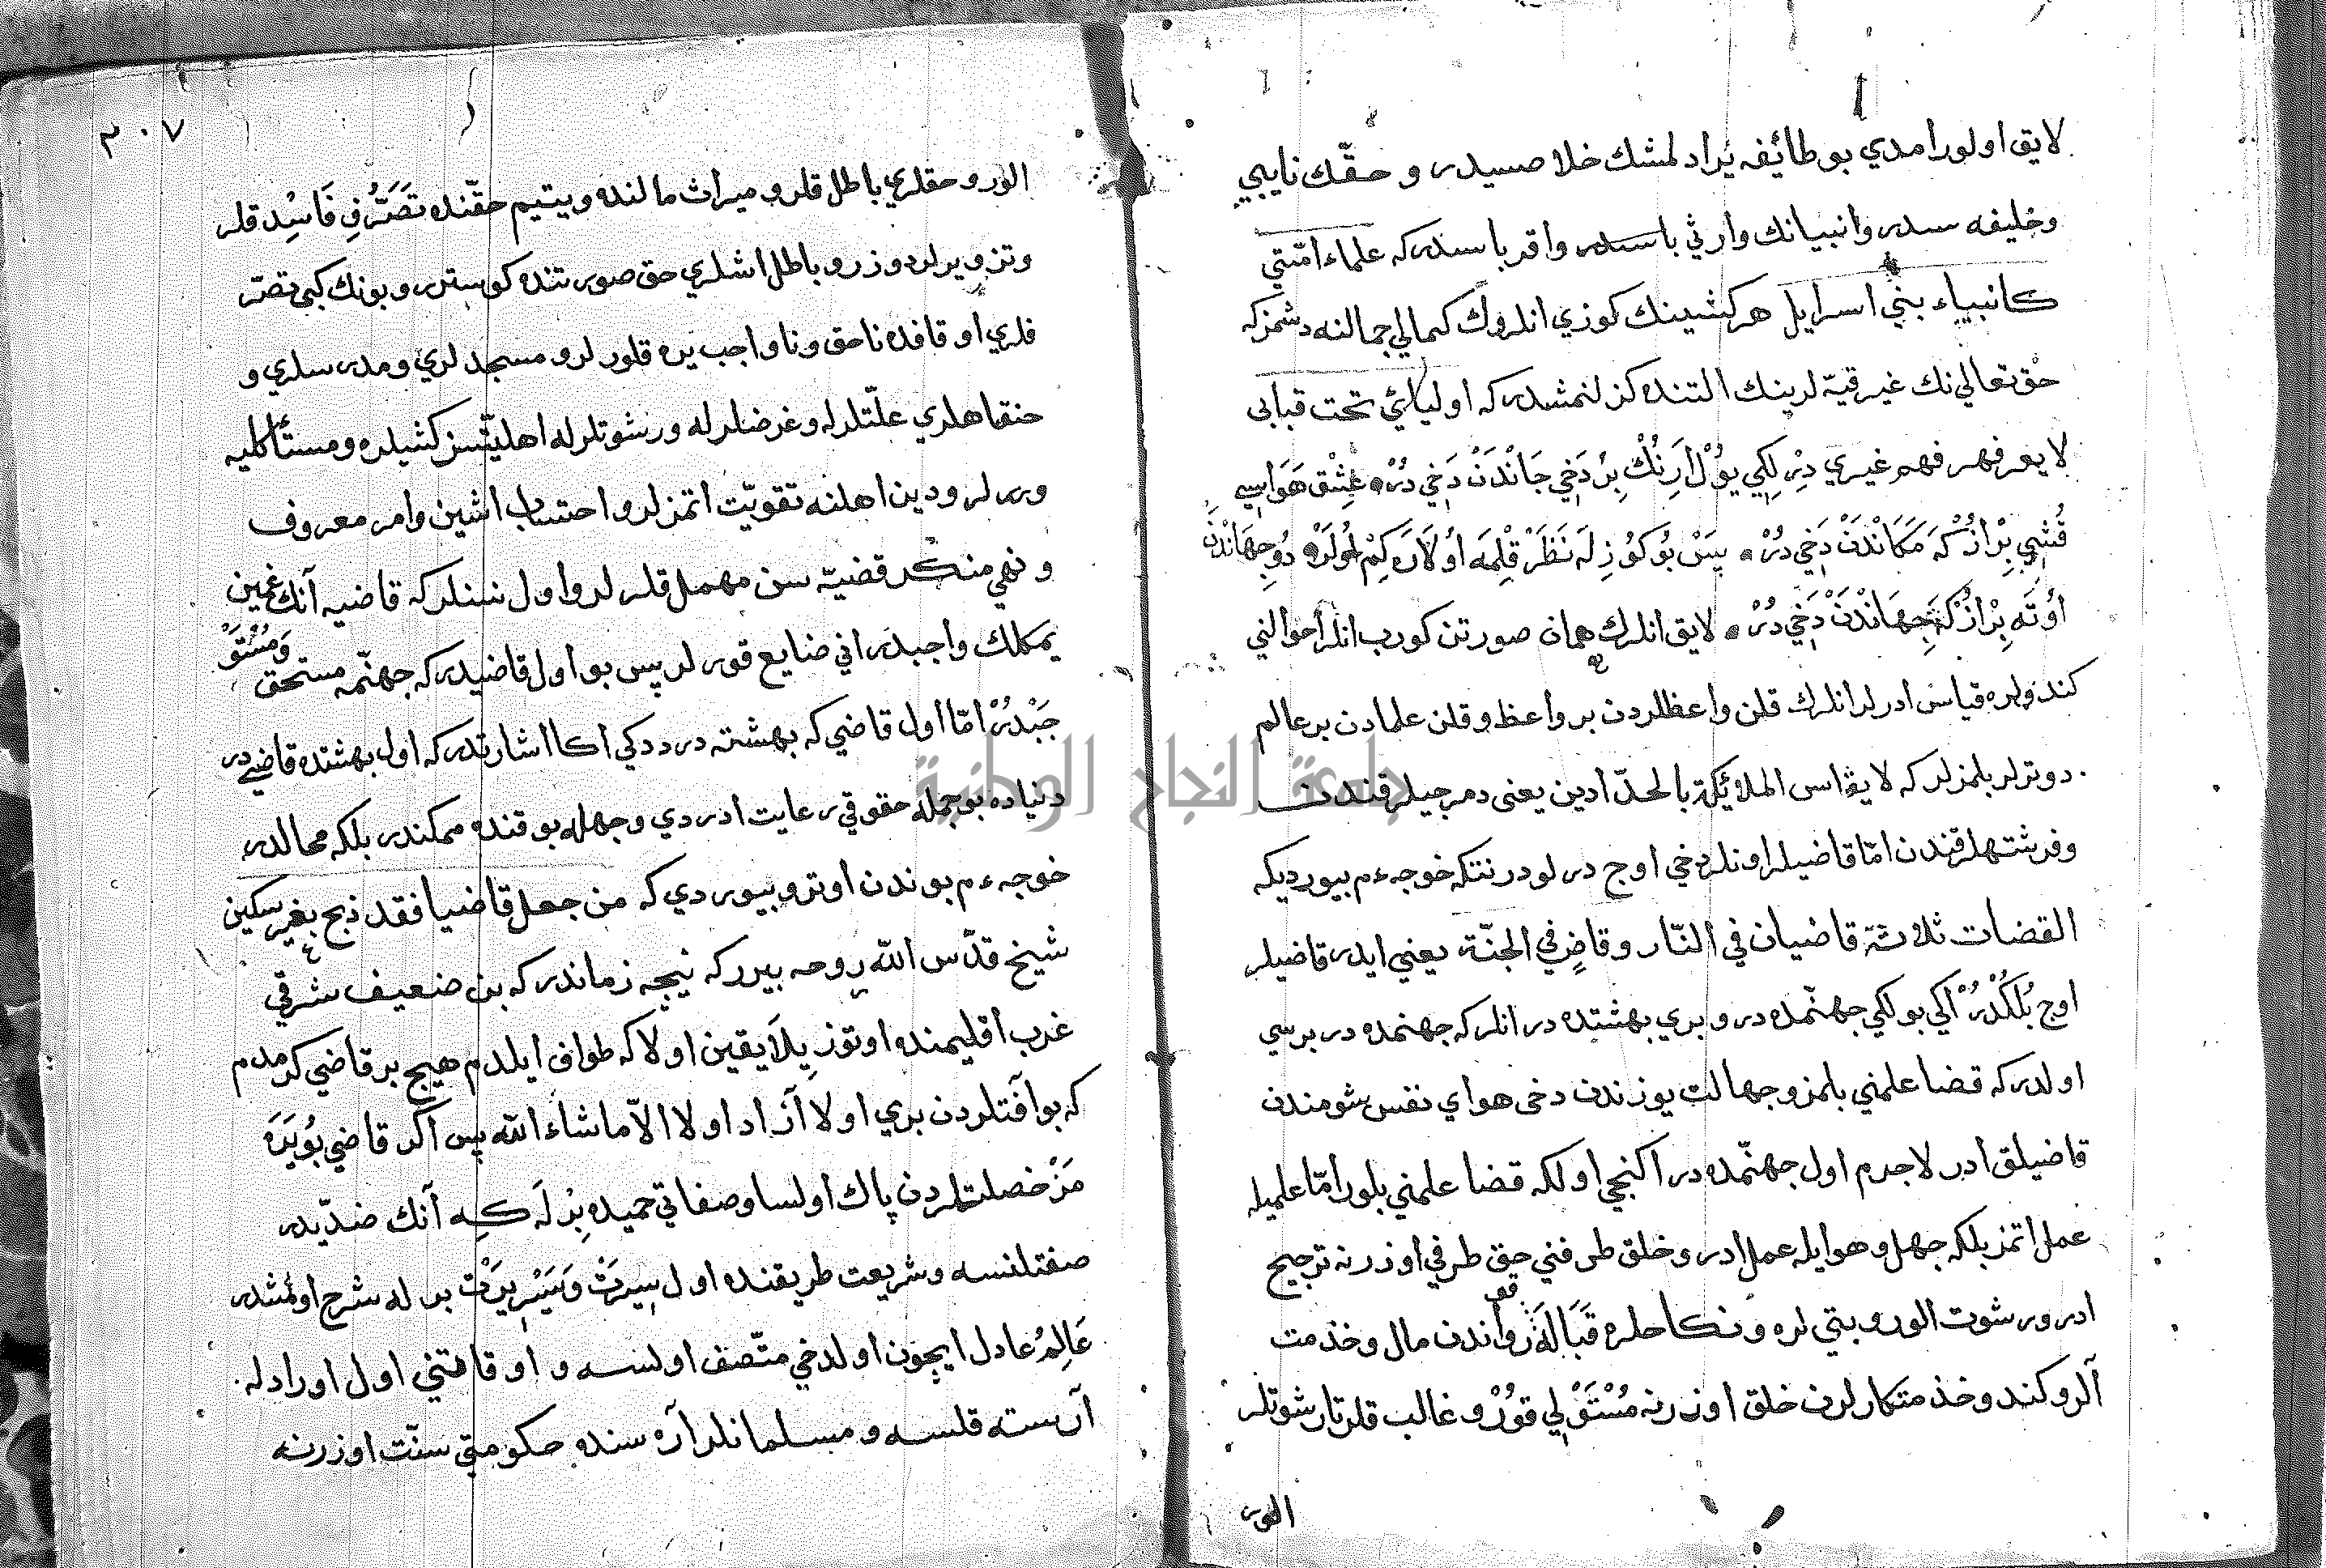 لايق اولور امدي بو طائفه يرادلمشك خلاصسيدر و حقّك نايبي
وخليفه سدر وانبيانك وارثي باسدر واقرباسدر كه علماء امّتي
كانبياء بني اسرايل هر كشينك كوزي انلروك كمالي جمالنه دشمزكه
حق تعالي نك غير قبّه لرينك التنده كزلنمشدر كه اوليائي تحت قبابى
لا يعرفهم غيري دِيْرلِكِي يُوْل اَرِنُكْ بِرْ دَخِي جَانْدَنْ دَخِي دُرْ عِشْق هَوَاسِي
قُشِي بِرْ اَزُكَه مَكَانْدَنْ دَخِي دُرْ پَسْ بُو كُوُزِلَه نَظَرْ قِلْمَه اُولَارَه كِمْ اُولَرْ دُو جِهَانْدَنْ
اُوتَه بِرْ اَزُكَه جِهَانْدَنْ دَخِي دُرْ لايق انلرك همان صورتن كورب انلر احوالني
كندولره قياس ادرلر انلرك قلن واعظلردن بر واعظ و قلن علمادن بر عالم
دوترلر بلمزلر كه لا يقاس الملائكة بالحدّادين يعنى دمرجيلر قندن
وفرشتهلر قندن امّا قاضيلر اونلر دخي اوج درلودر نتكه خوجه ءم بيورديكه
القضات ثلاثة قاضيان في النّار وقاضٍ في الجنّة يعني ايدر قاضيلر
اوج بُلُكْدُرْ اكي بولكي جهنّمده در و بري بهشتده در انلر كه جهنمده در برسي
اولدر كه قضا علمني بلمز وجهالت يوزندن دخى هواي نفس شومندن
قاضيلق ادر لاجرم اول جهنّمده در اكنجي اولكه قضا علمني بلور امّا علميله
عمل اتمز بلكه جهل و هوايله عمل ادر و خلق طرفني حق طرفي اوزرنه ترجيح
ادر و رشوت الور و بتي لره و نكاحلره قَبَالَه رواندن مال وخذمت
آلر و كندو خذمتكارلرن خلق اوزرنه مُسْتَوْلِي قوُرْ و غالب قلر تا رشوتلر
الور
٣٠٧
الور و حقلري باطل قلر و ميراث مالنده و يتيم حقّنده تَصَرُّفِ فَاسِد قلر
وتزويرلر دوزر و باطل اشلري حق صورتنده كوسترر و بونك كبى تصرّ
فلري اوقافده ناحق و ناواجب يره قلورلر و مسجدلري و مدرسلري و
خنقاهلري علّتلرله و غرضلرله و رشوتلرله اهليّتسز كشيلره و مستأكليه
ورلر و دين اهلنه تقويّت اتمزلر و احتساب اشين وامر معروف
و نهي منكر قضيّه سن مهمل قلرلر و اول نسنلر كه قاضيه آنك غمين
يمكلك واجبدر اني ضايع قورلر پس بو اول قاضيدر كه جهنّمه مستحق
وَمُسْتَوْ
جَبْدُرْ امّا اول قاضي كه بهشته در ددكي اكا اشارتدر كه اول بهشتده قاضي در
دنياده بو جمله حقوقي رعايت ادردي و جهله بو قنده ممكندر بلكه محالدر
خوجه ءم بوندن اوترو بيوردي كه من جعل قاضيا فقد ذبح بغير سكين
شيخ قدّس الله روحه بيرر كه نيجه زماندر كه بن ضعيف شرقي
غرب اقليمنده اوتوز ييلا يقين اولا كه طواف ايلدم هيچ بر قاضي كرمدم
كه بو آفتلردن بري اولا آزاد اولا الاّ ماشاء الله پس اكر قاضي بُويَرَه
مَزْ خصلتلردن پاك اولسا وصفاتي حميده بِرْلَه كه آنك ضدّيدر
صفتلنسه و شريعت طريقنده اول سِيرَتْ وَ سَرِيرَتْ برله شرح اولمشدر
عَالِمُ عادل ايچون اولدخي متّصف اولسه و اوقاقتني اول اورادله
آرسته قلسه و مسلمانلر آره سنده حكومتي سنّت اوزرنه